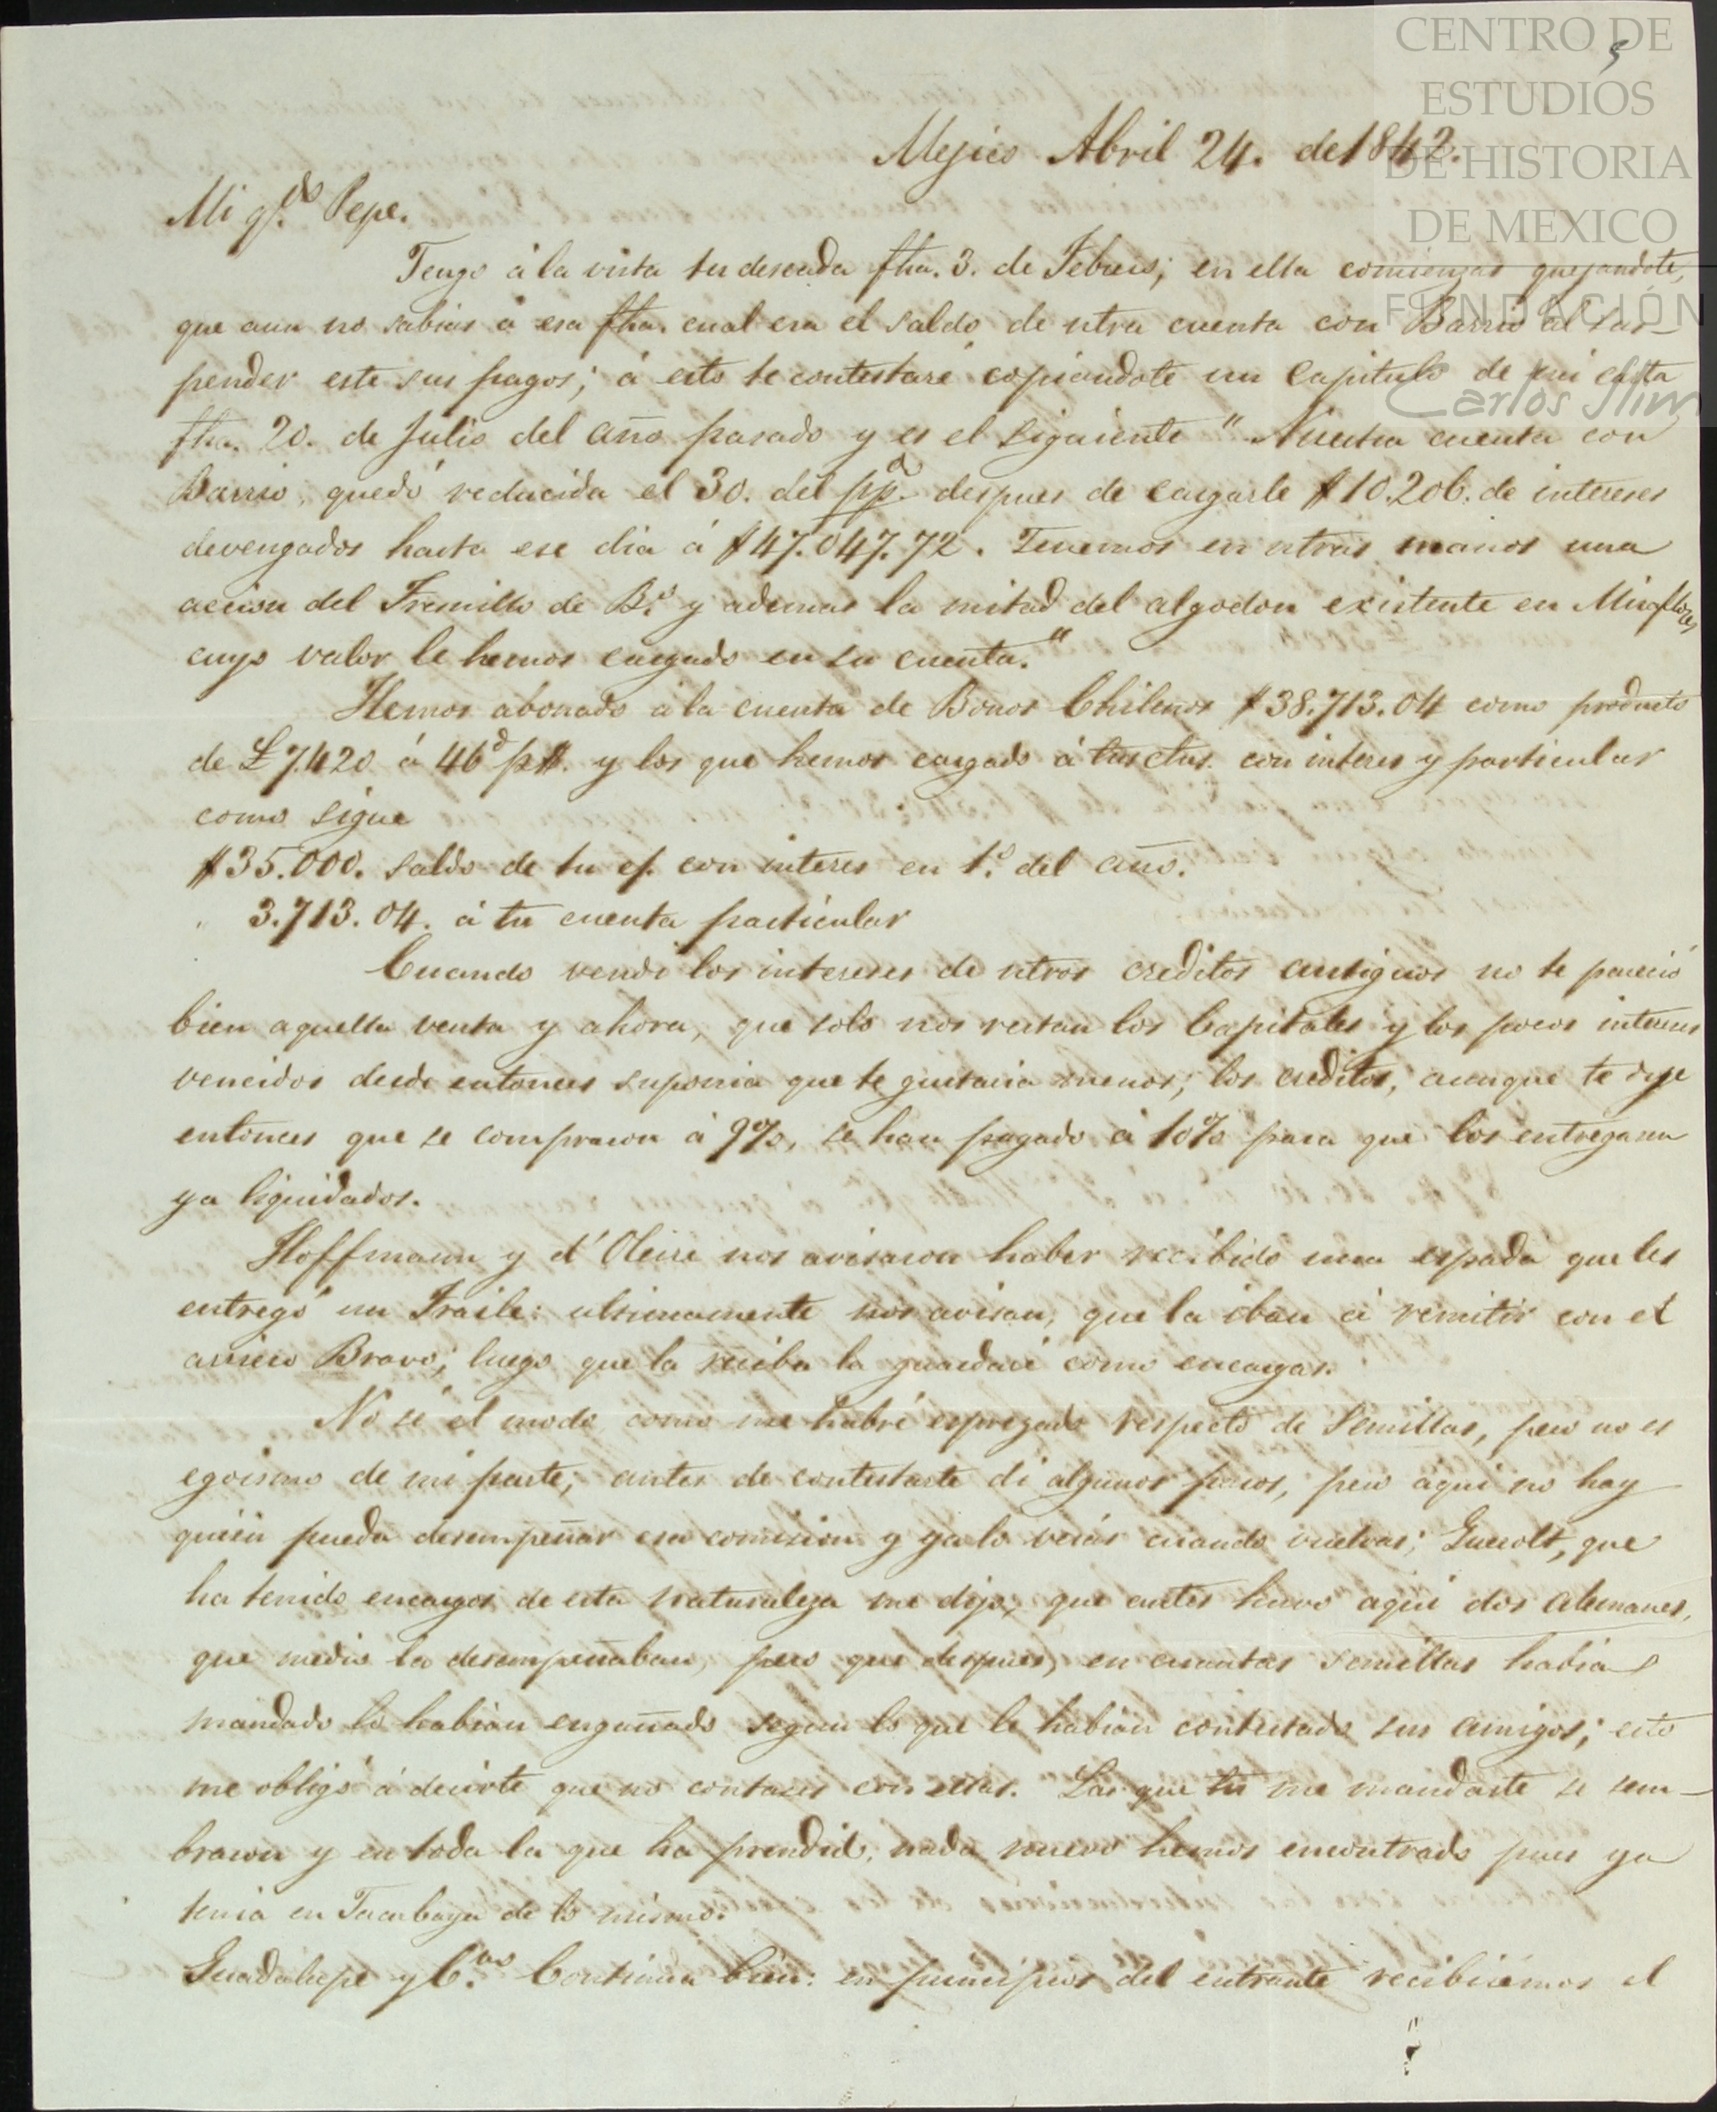 CENTRO DE
ESTUDIOS
DE HISTORIA
DE MEXICO
FUNDACIÓN
Carlos Slim
5
Mejico Abril 24. de 1842.
Mi q.do Pepe.
Tengo á la vista tu deseada fha. 3. de Febrero; en ella comienzas quejandote,
que aun no sabias á esa fha. cual era el saldo de ntra cuenta con Barrio al sus-
pender este sus pagos; á esto te contestaré copiandote un Capitulo de mi carta
fha. 20. de Julio del año pasado y es el siguiente "Nuestra cuenta con
Barrio, quedó reducida el 30. del pp.do despues de cargarle $10.206. de intereses
devengados hasta ese dia á $47.047.72. Tenemos en ntras manos una
accion del Fresnillo de B.o y ademas la mitad del algodon existente en Miraflores
cuyo valor le hemos cargado en su cuenta."
Hemos abonado á la cuenta de Bonos Chilenos $38.713.04 como producto
de £7.420 á 46d p$. y los que hemos cargado á tus ctas. con interes y particular
como sigue
$35.000. saldo de tu cf. con interes en 1.o del año.
" 3.713.04. á tu cuenta particular
Cuando vendi los intereses de ntros creditos antiguos no te pareció
bien aquella venta y ahora, que solo nos restan los Capitales y los pocos intereses
vencidos desde entonces suponia que te gustaria menos; los creditos, aunque te dije
entonces que se compraron á 9%, se han pagado á 10% para que los entregaran
ya liquidados.
Hoffmann y d'Oleire nos avisaron haber recibido una espada que les
entregó un Fraile: ultimamente nos avisan, que la iban á remitir con el
arriero Bravo; luego que la reciba la guardaré como encargas.
No sé el modo como me habré esprezado respecto de Semillas, pero no es
egoismo de mi parte; antes de contestarte di algunos pasos, pero aqui no hay
quien pueda desempeñar esa comision y ya lo verás cuando vuelvas; Guerolt, que
ha tenido encargos de esta naturaleza me dijo, que antes huvo aqui dos Alemanes,
que medio la desempeñaban, pero que despues, en cuantas semillas habia
mandado lo habian engañado segun lo que le habian contestado sus amigos; esto
me obligó á decirte que no contases con ellas. Las que tu me mandaste se sem-
braron y en toda la que ha prendido, nada nuevo hemos encontrado pues ya
tenia en Tacubaya de lo mismo.
Guadalupe y C.as Continua bien: en principios del entrante recibirémos el